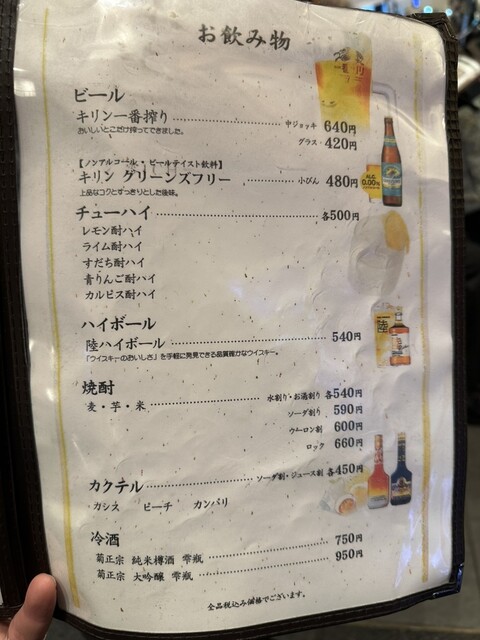 お飲み物
ビール
キリン一番搾り 中ジョッキ 640円
おいしいとこだけ搾ってできました。
グラス 420円
【ノンアルコール・ビールテイスト飲料】
キリン グリーンズフリー 小びん 480円
上品なコクとすっきりとした後味。
ALC. 0.00%
チューハイ 各500円
レモン酎ハイ
ライム酎ハイ
すだち酎ハイ
青りんご酎ハイ
カルピス酎ハイ
ハイボール
陸ハイボール 540円
「ウイスキーのおいしさ」を手軽に発見できる品質確かなウイスキー。
陸
焼酎
麦・芋・米 水割り・お湯割り 各540円
ソーダ割り 590円
ウーロン割 600円
ロック 660円
カクテル ソーダ割・ジュース割 各450円
カシス ピーチ カンパリ
冷酒
菊正宗 純米樽酒 雫瓶 750円
菊正宗 大吟醸 雫瓶 950円
全品税込み価格でございます。